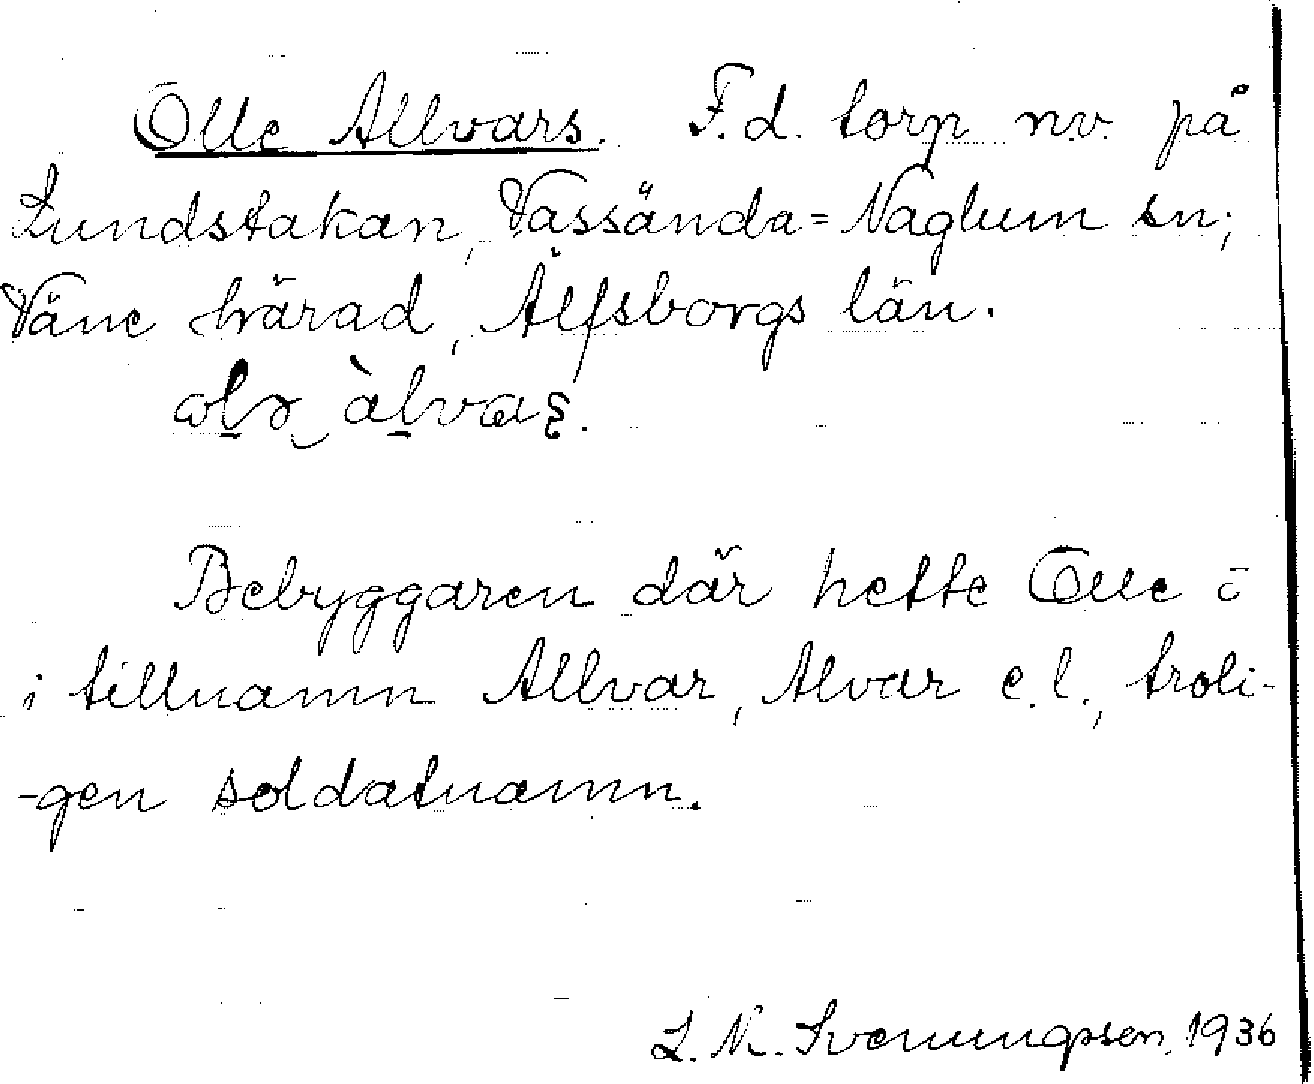 Olle Allvars. F.d. torp nv. på
Lundstakan, Vassända=Naglum sn;
Väne härad, Älfsborgs län.
Bebyggaren där hette Olle o
i tillnamn Allvar, Alvar e.l., troli-
-gen soldatnamn.
L. N. Svenungsson, 1936